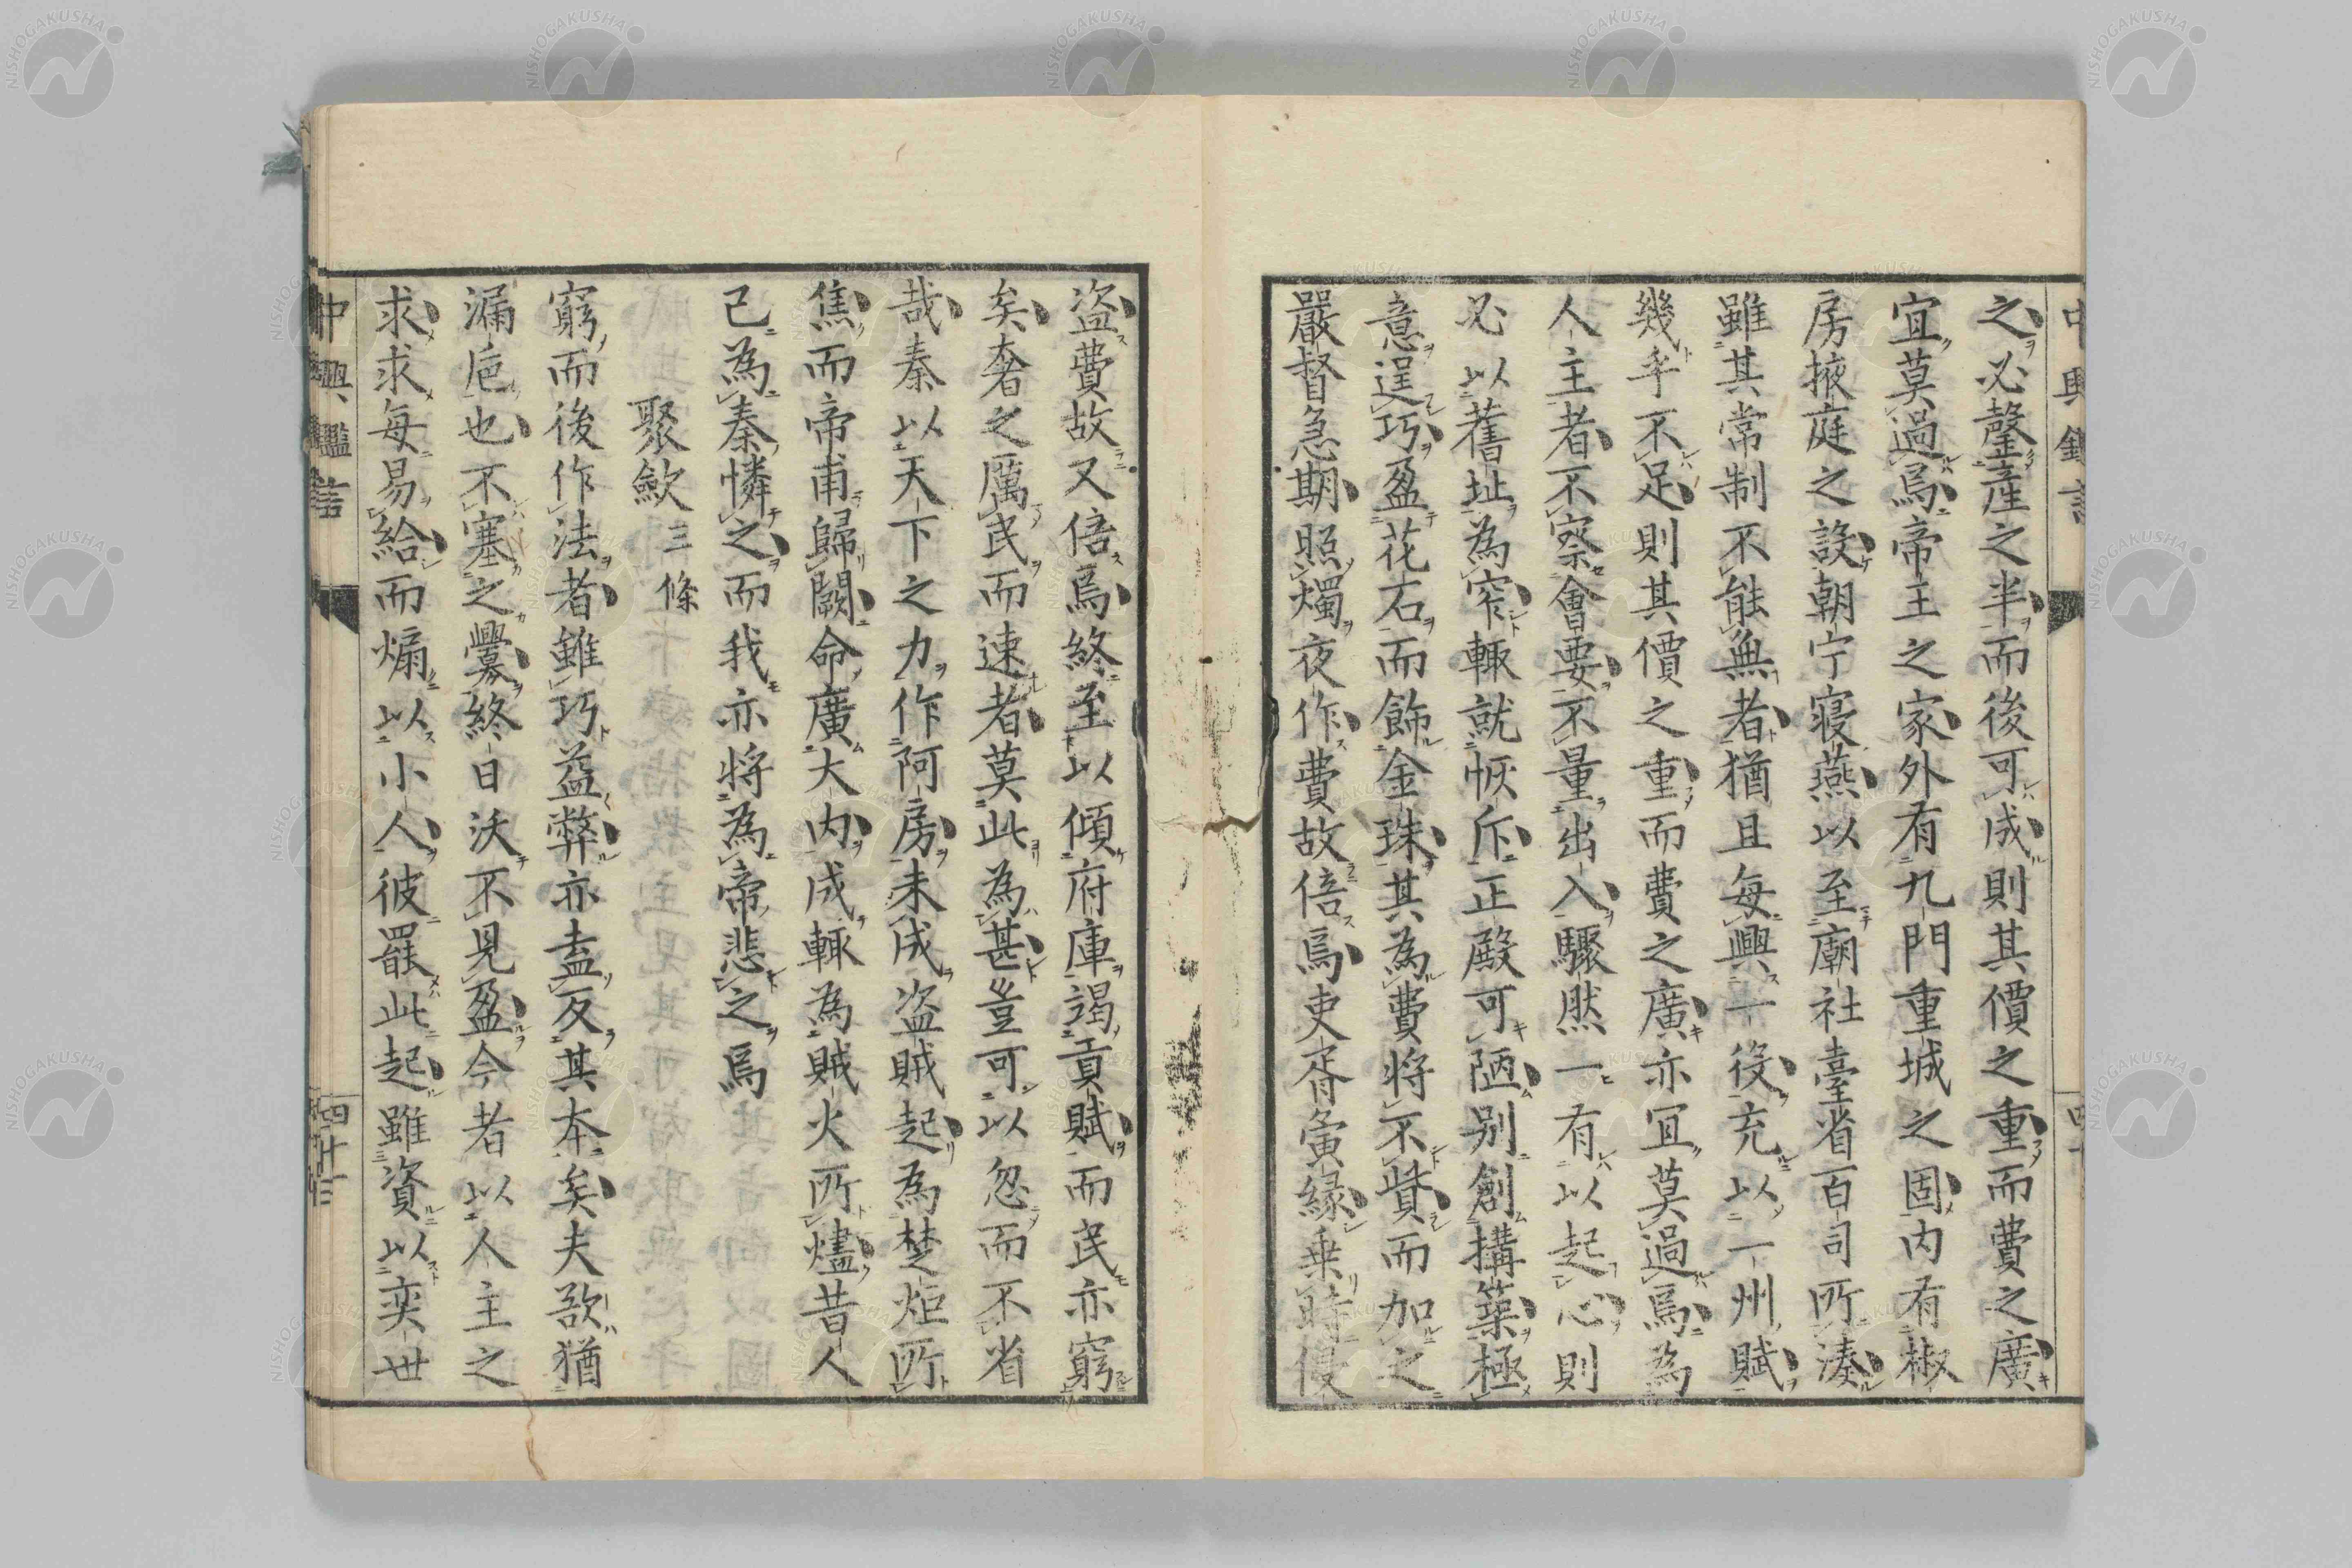 之必罄産之半而後可成則其價之重而費之廣
宜莫過焉帝王之家外有九門重城之固内有椒
房掖庭之設朝宁寝燕以至廟社臺省百司所湊
雖其常制不能無者猶且每興一役充以一州賦
幾乎不足則其價之重而費之廣亦冝莫過焉為
人主者不察會要不量出入驟然一有以起心則
必以舊址為窄輙就恢斥正殿可陋别創搆築極
意逞巧盈花石而飾金珠其為費將不貲而加之
嚴督急期照燭夜作費故倍焉吏胥夤縁乗時侵
盗費故又倍焉終至以傾府庫竭貢賦而民亦窮
矣奢之厲民而速者莫此為甚豈可以忽而不省
哉秦以天下之力作阿房未成盗賊起為楚炬所
焦而帝甫歸闕命廣大内成輙為賊火所燼昔人
已為秦憐之而我亦将為帝悲之焉
聚歛三條
窮而後作法者雖巧益弊亦盍反其本矣夫歛猶
漏巵也不塞之釁終日沃不見盈今者以人主之
求求每易給而煽以小人彼罷此起雖資以奕世
中興鑑言
四十三